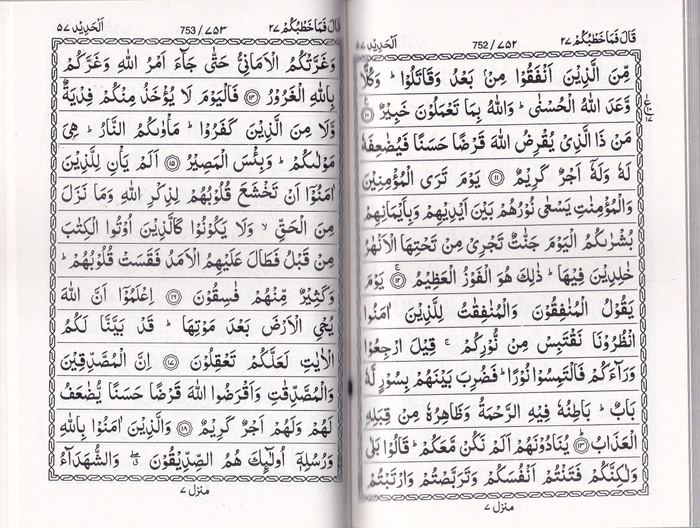 قَالَ فَمَا خَطْبُكُمْ ٢٧
752 / ٧٥٢
اَلْحَدِيْد ٥٧
مِّنَ الَّذِيْنَ اَنْفَقُوْا مِنْۢ بَعْدُ وَقَاتَلُوْا ؕ وَكُلًّا
وَّعَدَ اللّٰهُ الْحُسْنٰى ؕ وَاللّٰهُ بِمَا تَعْمَلُوْنَ خَبِيْرٌ ۝١٠
مَنْ ذَا الَّذِىْ يُقْرِضُ اللّٰهَ قَرْضًا حَسَنًا فَيُضٰعِفَهٗ
لَهٗ وَلَهٗۤ اَجْرٌ كَرِيْمٌ ۝١١ يَوْمَ تَرَى الْمُؤْمِنِيْنَ
وَالْمُؤْمِنٰتِ يَسْعٰى نُوْرُهُمْ بَيْنَ اَيْدِيْهِمْ وَبِاَيْمَانِهِمْ
بُشْرٰىكُمُ الْيَوْمَ جَنّٰتٌ تَجْرِىْ مِنْ تَحْتِهَا الْاَنْهٰرُ
خٰلِدِيْنَ فِيْهَا ؕ ذٰلِكَ هُوَ الْفَوْزُ الْعَظِيْمُ ۝١٢ يَوْمَ
يَقُوْلُ الْمُنٰفِقُوْنَ وَالْمُنٰفِقٰتُ لِلَّذِيْنَ اٰمَنُوا
انْظُرُوْنَا نَقْتَبِسْ مِنْ نُّوْرِكُمْ ۚ قِيْلَ ارْجِعُوْا
وَرَآءَكُمْ فَالْتَمِسُوْا نُوْرًا ؕ فَضُرِبَ بَيْنَهُمْ بِسُوْرٍ لَّهٗ
بَابٌ ؕ بَاطِنُهٗ فِيْهِ الرَّحْمَةُ وَظَاهِرُهٗ مِنْ قِبَلِهِ
الْعَذَابُ ۝١٣ يُنَادُوْنَهُمْ اَلَمْ نَكُنْ مَّعَكُمْ ؕ قَالُوْا بَلٰى
وَلٰكِنَّكُمْ فَتَنْتُمْ اَنْفُسَكُمْ وَتَرَبَّصْتُمْ وَارْتَبْتُمْ
منزل ٧
قَالَ فَمَا خَطْبُكُمْ ٢٧
753 / ٧٥٣
اَلْحَدِيْد ٥٧
وَغَرَّتْكُمُ الْاَمَانِىُّ حَتّٰى جَآءَ اَمْرُ اللّٰهِ وَغَرَّكُمْ
بِاللّٰهِ الْغَرُوْرُ ۝١٤ فَالْيَوْمَ لَا يُؤْخَذُ مِنْكُمْ فِدْيَةٌ
وَّلَا مِنَ الَّذِيْنَ كَفَرُوْا ؕ مَاْوٰىكُمُ النَّارُ ؕ هِىَ
مَوْلٰىكُمْ ؕ وَبِئْسَ الْمَصِيْرُ ۝١٥ اَلَمْ يَاْنِ لِلَّذِيْنَ
اٰمَنُوْۤا اَنْ تَخْشَعَ قُلُوْبُهُمْ لِذِكْرِ اللّٰهِ وَمَا نَزَلَ
مِنَ الْحَقِّ ۙ وَلَا يَكُوْنُوْا كَالَّذِيْنَ اُوْتُوا الْكِتٰبَ
مِنْ قَبْلُ فَطَالَ عَلَيْهِمُ الْاَمَدُ فَقَسَتْ قُلُوْبُهُمْ ؕ
وَكَثِيْرٌ مِّنْهُمْ فٰسِقُوْنَ ۝١٦ اِعْلَمُوْۤا اَنَّ اللّٰهَ
يُحْىِ الْاَرْضَ بَعْدَ مَوْتِهَا ؕ قَدْ بَيَّنَّا لَكُمُ
الْاٰيٰتِ لَعَلَّكُمْ تَعْقِلُوْنَ ۝١٧ اِنَّ الْمُصَّدِّقِيْنَ
وَالْمُصَّدِّقٰتِ وَاَقْرَضُوا اللّٰهَ قَرْضًا حَسَنًا يُّضٰعَفُ
لَهُمْ وَلَهُمْ اَجْرٌ كَرِيْمٌ ۝١٨ وَالَّذِيْنَ اٰمَنُوْا بِاللّٰهِ
وَرُسُلِهٖۤ اُولٰٓئِكَ هُمُ الصِّدِّيْقُوْنَ ۖ وَالشُّهَدَآءُ
منزل ٧